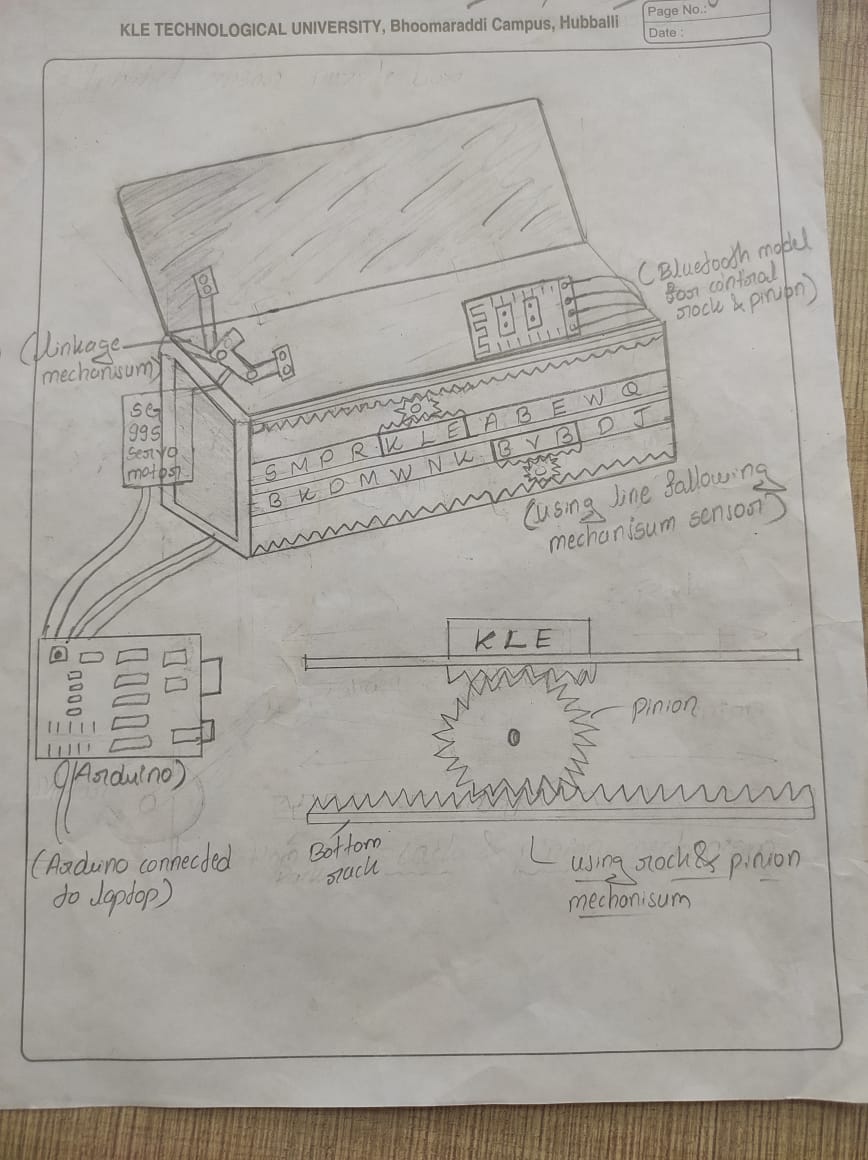 KLE TECHNOLOGICAL UNIVERSITY, Bhoomaraddi Campus, Hubballi
Page No.:
Date :
(Bluetooth model
for contoral
rock & pinion)
(linkage
mechanisum)
se
995
servo
motor
S M P R K L E A B E W Q
B K D M W N K B V B D J
(using line fallowing
mechanisum sensor)
KLE
pinion
(Arduino)
(Arduino connected
to laptop)
Bottom
rack
using rock & pinion
mechanisum